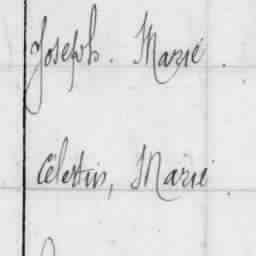 Joseph. Marie.
Célestin, Marie.